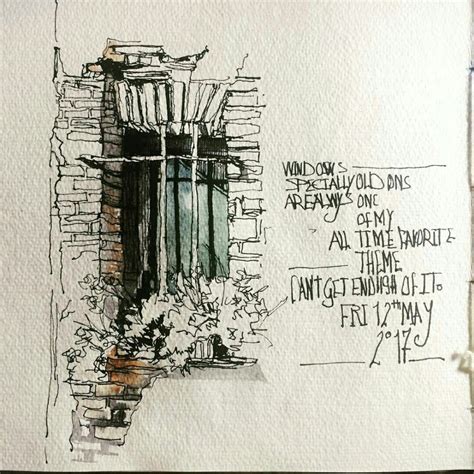 WINDOWS
SPECIALLY OLD ONS
AREALWYS ONE
OF MY
ALL TIME FAVORITE
THEME
CANT GET ENOUGH OF IT.
FRI 12TH MAY
2017